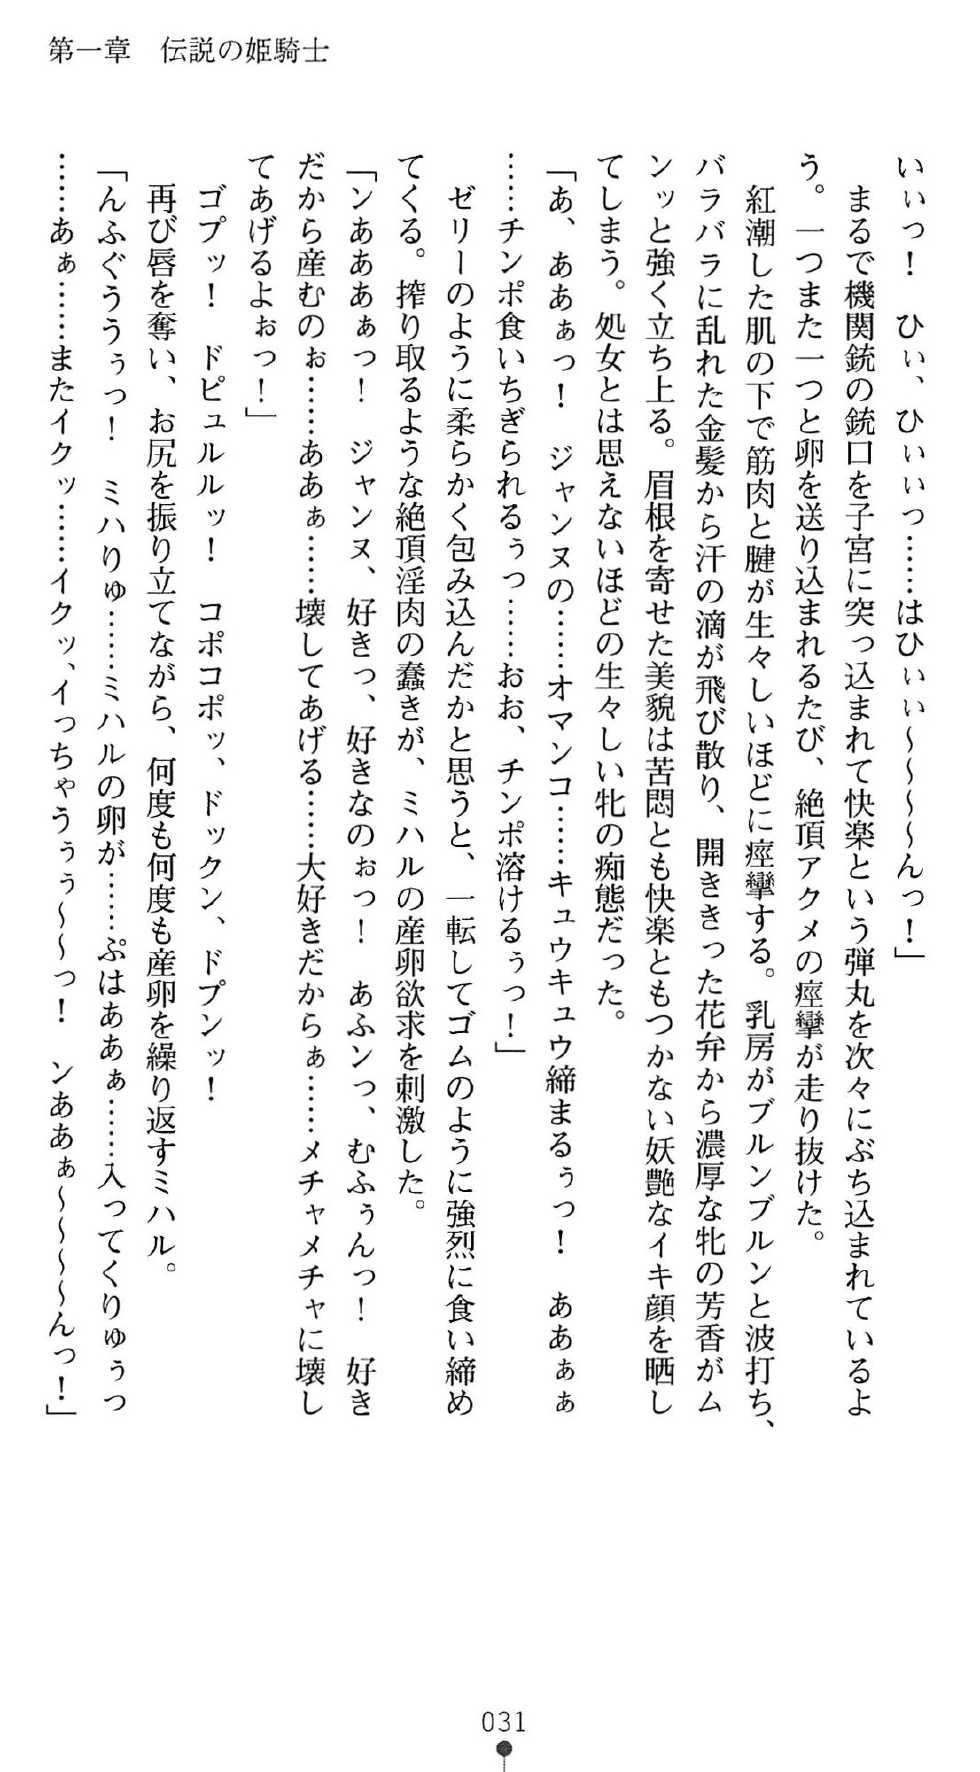 第一章　伝説の姫騎士
いぃっ！　ひぃ、ひぃぃっ……はひぃぃ～～～～んっ！」
　まるで機関銃の銃口を子宮に突っ込まれて快楽という弾丸を次々にぶち込まれているよ
う。一つまた一つと卵を送り込まれるたび、絶頂アクメの痙攣が走り抜けた。
　紅潮した肌の下で筋肉と腱が生々しいほどに痙攣する。乳房がブルンブルンと波打ち、
バラバラに乱れた金髪から汗の滴が飛び散り、開ききった花弁から濃厚な牝の芳香がム
ンッと強く立ち上る。眉根を寄せた美貌は苦悶とも快楽ともつかない妖艶なイキ顔を晒し
てしまう。処女とは思えないほどの生々しい牝の痴態だった。
「あ、ああぁっ！　ジャンヌの……オマンコ……キュウキュウ締まるぅっ！　ああぁぁ
……チンポ食いちぎられるぅっ……おお、チンポ溶けるぅっ！」
　ゼリーのように柔らかく包み込んだかと思うと、一転してゴムのように強烈に食い締め
てくる。搾り取るような絶頂淫肉の蠢きが、ミハルの産卵欲求を刺激した。
「ンあああぁっ！　ジャンヌ、好きっ、好きなのぉっ！　あふンっ、むふぅんっ！　好き
だから産むのぉ……ああぁ……壊してあげる……大好きだからぁ……メチャメチャに壊し
てあげるよぉっ！」
　ゴプッ！　ドピュルルッ！　コポコポッ、ドックン、ドプンッ！
　再び唇を奪い、お尻を振り立てながら、何度も何度も産卵を繰り返すミハル。
「んふぐううぅっ！　ミハりゅ……ミハルの卵が……ぷはああぁ……入ってくりゅぅっ
……あぁ……またイクッ……イクッ、イっちゃうぅぅ～～っ！　ンああぁ～～～～んっ！」
031